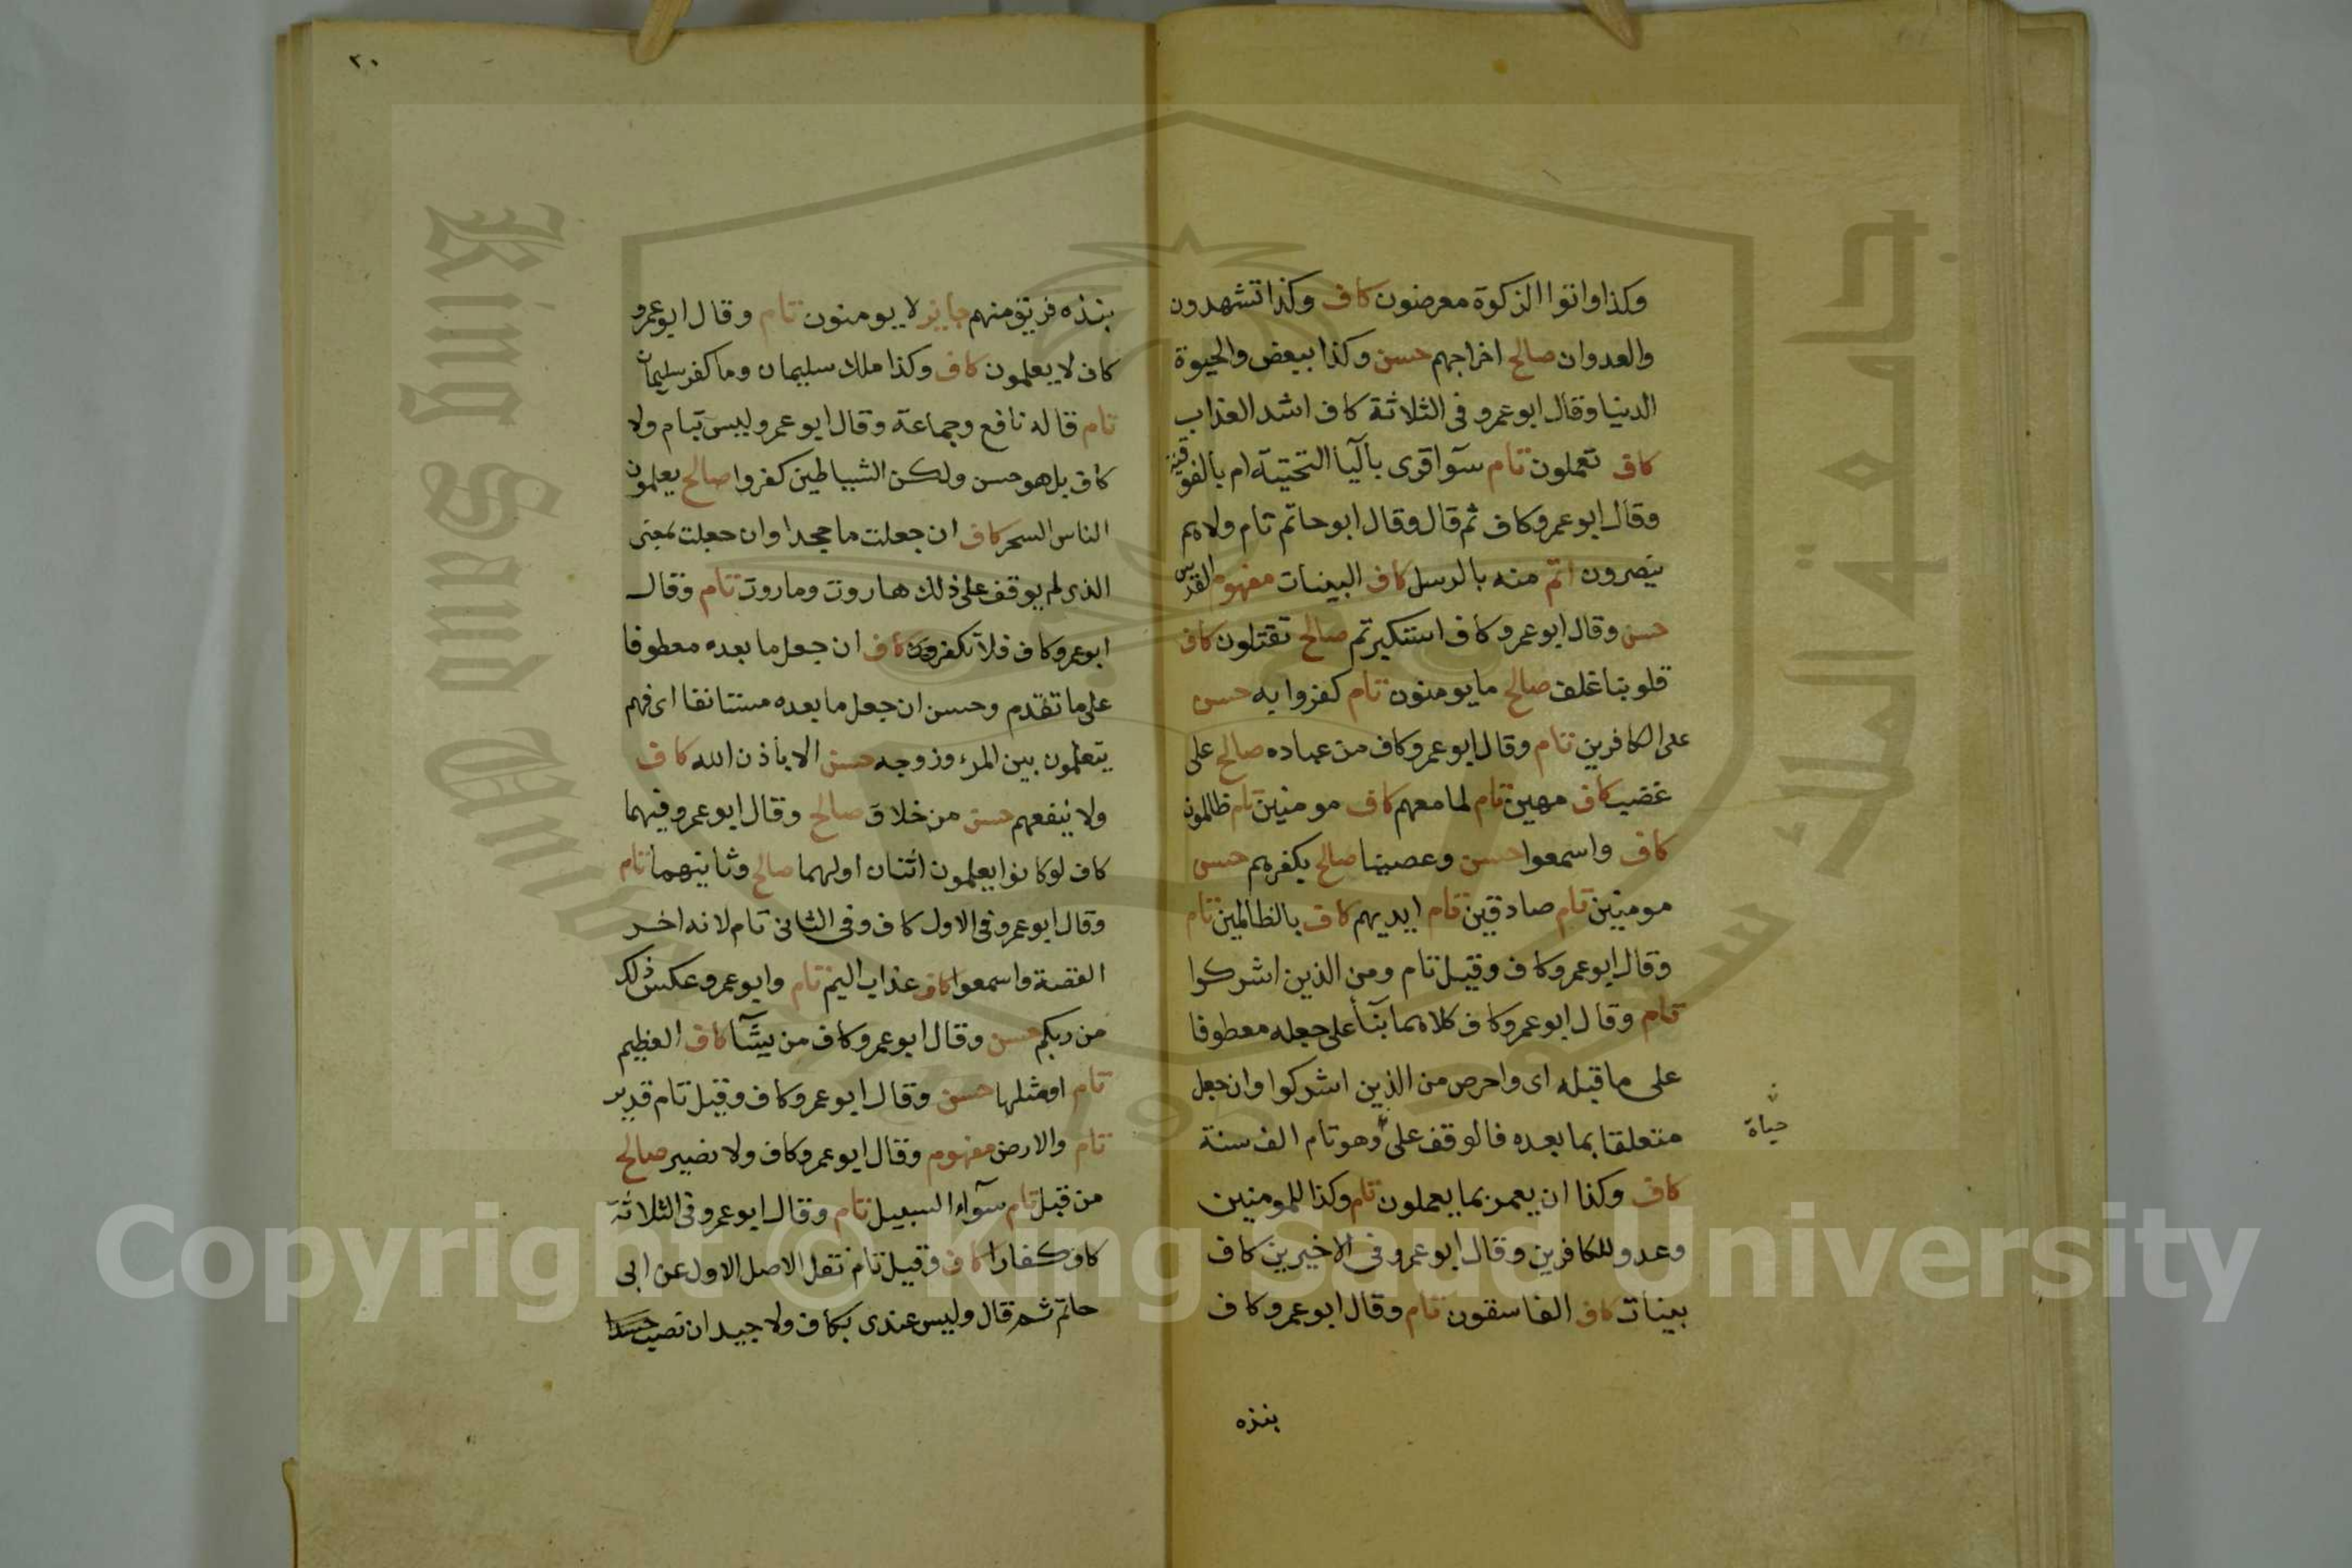 وكذا واتوا الزكوة معرضون كاف وكذا تشهدون
والعدوان صالح اخراجهم حسن وكذا ببعض والحيوة
الدنيا وقال ابو عمرو في الثلاثة كاف اشد العذاب
كاف تعملون تام سوآ اقرى باليآ التحتيه ام بالفوقية
وقال ابو عمرو كاف ثم قال وقال ابو حاتم تام ولا هم
ينصرون اتم منه بالرسل كاف البينات مفهوم القدس
حسن وقال ابو عمرو كاف استكبرتم صالح تقتلون كاف
قلوبنا غلف صالح ما يومنون تام كفروا به حسن
على الكافرين تام وقال ابو عمرو كاف من عباده صالح على
غضب كاف مهين تام لما معهم كاف مومنين تام ظالمون
كاف واسمعوا حسن وعصينا صالح بكفرهم حسن
مومنين تام صادقين تام ايديهم كاف بالظالمين تام
وقال ابو عمرو كاف وقيل تام ومن الذين اشركوا
تام وقال ابو عمرو كاف كلاهما بنآ على جعله معطوفا
على ما قبله اى واحرص من الذين اشركوا وان جعل
متعلقا بما بعده فالوقف على وهو تام الف سنة
حياة
كاف وكذا ان يعمر بما يعملون تام وكذا للمومنين
وعدو للكافرين وقال ابو عمرو في الاخيرين كاف
بينات كاف الفاسقون تام وقال ابو عمرو كاف
بنذه
٢٠
بنذه فريق منهم جايز لا يومنون تام وقال ابو عمرو
كاف لا يعلمون كاف وكذا ملك سليمان وما كفر سليمان
تام قاله نافع وجماعة وقال ابو عمرو وليس بتام ولا
كاف بل هو حسن ولكن الشياطين كفروا صالح يعلمون
الناس السحر كاف ان جعلت ما جحدا وان جعلت بمعنى
الذى لم يوقف على ذلك هاروت وماروت تام وقال
ابو عمرو كاف فلا تكفر كاف ان جعل ما بعده معطوفا
على ما تقدم وحسن ان جعل ما بعده مستانفا اى فهم
يتعلمون بين المرء وزوجه حسن الا باذن الله كاف
ولا ينفعهم حسن من خلاق صالح وقال ابو عمرو فيهما
كاف لو كانوا يعلمون اثنان اولهما صالح وثانيهما تام
وقال ابو عمرو في الاول كاف وفي الثانى تام لانه اخر
القصة واسمعوا كاف عذاب اليم تام وابو عمرو عكس ذلك
من ربكم حسن وقال ابو عمرو كاف من يشآ كاف العظيم
تام او مثلها حسن وقال ابو عمرو كاف وقيل تام قدير
تام والارض مفهوم وقال ابو عمرو كاف ولا نصير صالح
من قبل تام سوآء السبيل تام وقال ابو عمرو في الثلاثة
كاف كفارا كاف وقيل تام نقل الاصل الاول عن ابى
حاتم ثم قال وليس عندى بكاف ولا جيد ان نصب حسدا
King Saud University
جامعة الملك سعود
1957
Copyright © King Saud University